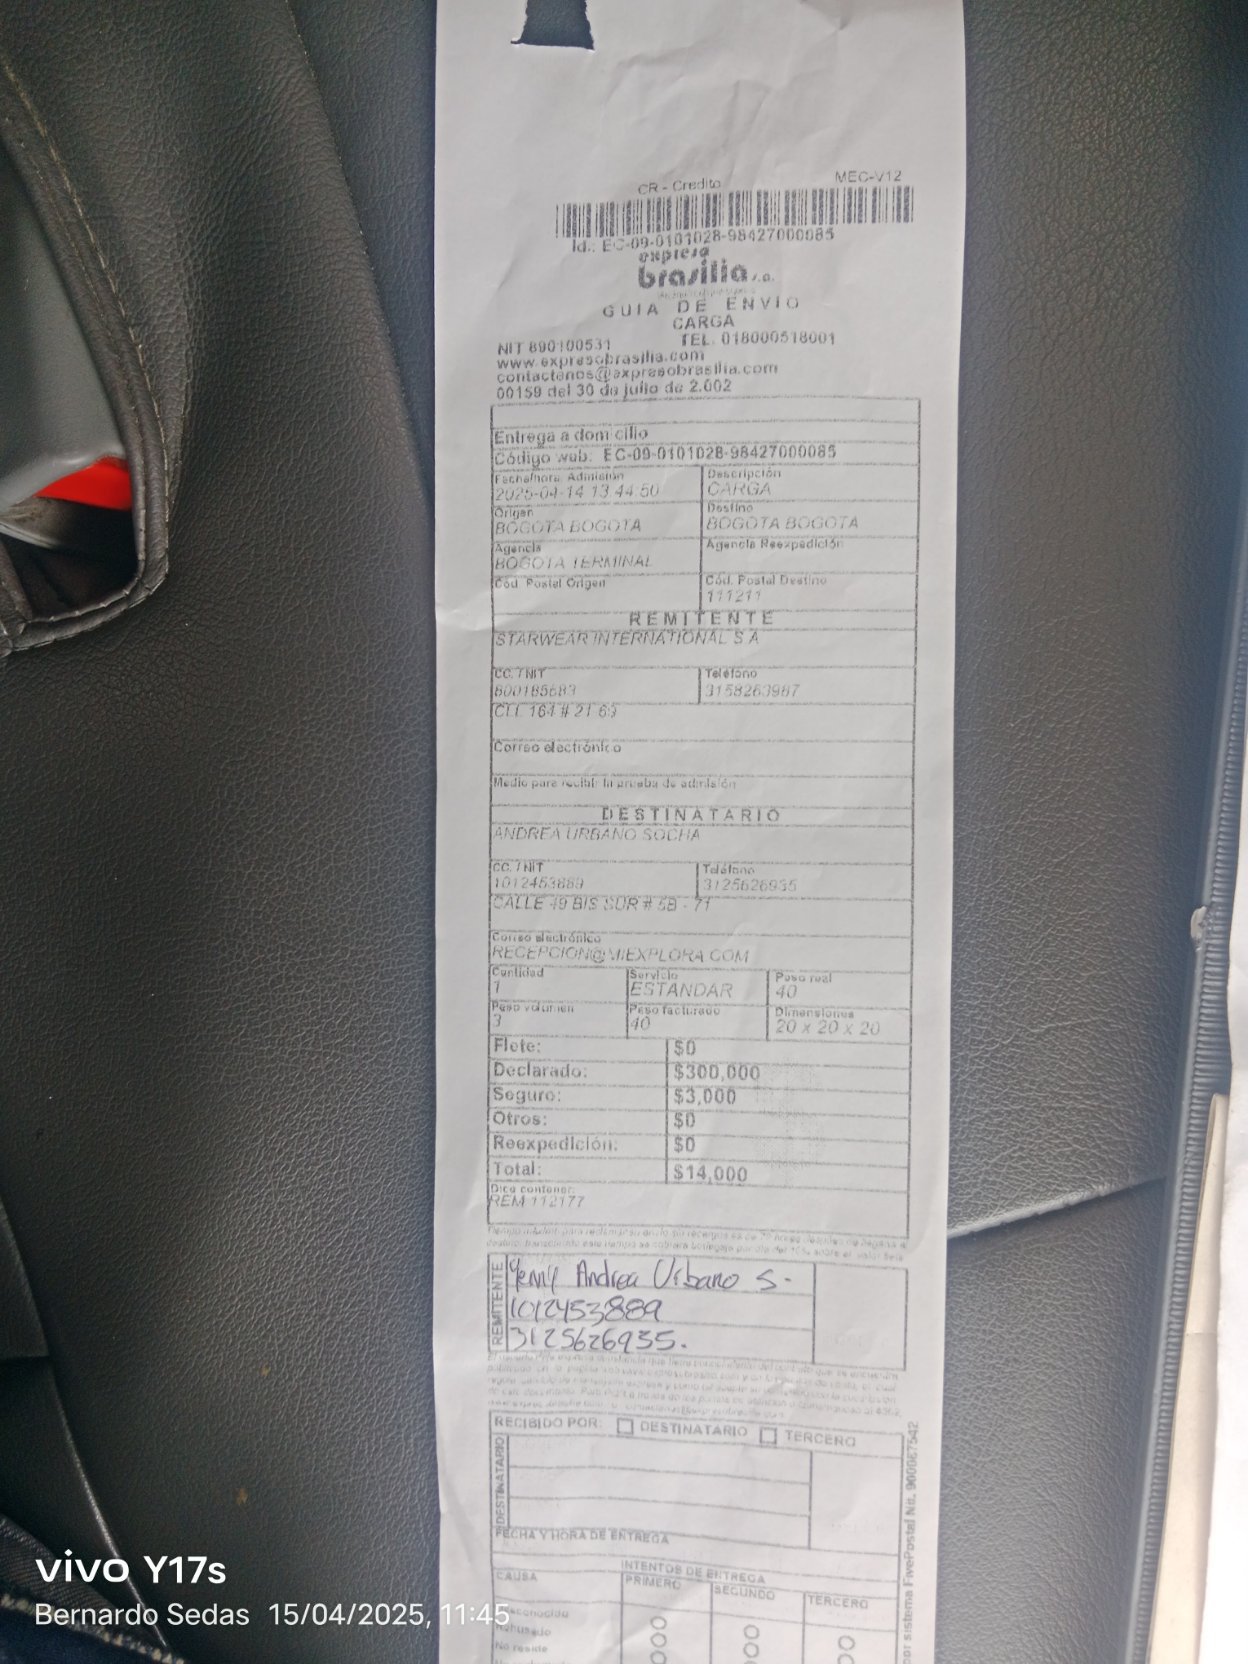 CR - Credito MEC-V12
Id.: EC-09-0101028-98427000085
expreso
brasilia s.a.
GUIA DE ENVIO
CARGA
NIT 890100531 TEL. 018000518001
www.expresobrasilia.com
contactenos@expresobrasilia.com
00159 del 30 de julio de 2.002
Entrega a domicilio
Código web: EC-09-0101028-98427000085
Fecha/hora Admisión Descripción
2025-04-14 13:44:50 CARGA
Origen Destino
BOGOTA BOGOTA BOGOTA BOGOTA
Agencia Agencia Reexpedición
BOGOTA TERMINAL
Cód. Postal Origen Cód. Postal Destino
111211
REMITENTE
STARWEAR INTERNATIONAL S A
CC. / NIT Teléfono
800185683 3158263987
CLL 164 # 21 69
Correo electrónico
Medio para recibir la prueba de admisión
DESTINATARIO
ANDREA URBANO SOCHA
CC. / NIT Teléfono
1012453889 3125626935
CALLE 49 BIS SUR # 5B - 71
Correo electrónico
RECEPCION@MIEXPLORA.COM
Cantidad Servicio Peso real
1 ESTANDAR 40
Peso volumen Peso facturado Dimensiones
3 40 20 x 20 x 20
Flete: $0
Declarado: $300,000
Seguro: $3,000
Otros: $0
Reexpedición: $0
Total: $14,000
Dice contener:
REM 112177
REMITENTE
Yenny Andrea Urbano S.
1012453889
3125626935.
RECIBIDO POR: DESTINATARIO TERCERO
DESTINATARIO
FECHA Y HORA DE ENTREGA
INTENTOS DE ENTREGA
CAUSA PRIMERO SEGUNDO TERCERO
Rehusado
No reside
por sistema FivePostal Nit. 900087542
vivo Y17s
Bernardo Sedas 15/04/2025, 11:45